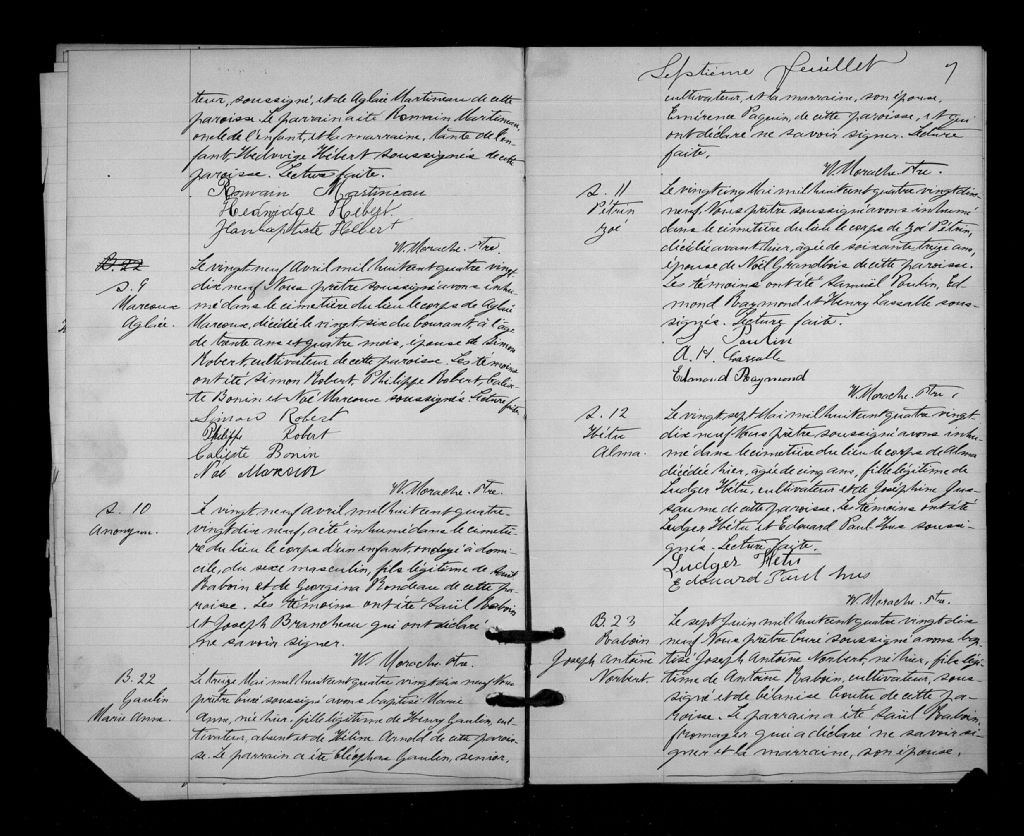 teur, soussigné, et de Aglaée Martineau de cette
paroisse. Le parrain a été Romain Martineau,
oncle de l'enfant, et la marraine, tante de l'en-
fant, Hedwige Hébert soussignés de cette
paroisse. Lecture faite.
Romain Martineau
Hedwidge Hebert
Jean baptiste Hebert
W. Morache. Ptre.
B. 22
S. 9
Marcoux
Aglaée.
Le vingt neuf Avril mil huit cent quatre vingt
dix neuf Nous prêtre soussigné avons inhu-
mé dans le cimetière du lieu le corps de Aglaé
Marcoux, décédée le vingt six du courant à l'age
de trente ans et quatre mois, épouse de Simon
Robert, cultivateur de cette paroisse. Les témoins
ont été Simon Robert, Philippe Robert, Calix-
te Bonin et Noé Marcoux soussignés. Lecture faite
Simon Robert
Philippe Robert
Calixte Bonin
Noé Marcoux
W. Morache. Ptre.
S. 10
Anonyme.
Le vingt neuf Avril, mil huit cent quatre-
vingt dix neuf, a été inhumé dans le cimetiè-
re du lieu le corps d'un enfant, ondoyé à domi-
cile, du sexe masculin, fils légitime de
Baboin et de Georgina Rondeau de cette pa-
roisse. Les témoins ont été Saül Baboin
et Joseph Brancheau qui ont déclaré
ne savoir signer.
W. Morache. Ptre.
B. 22
Gaulin
Marie Anna.
Le treize Mai mil huit cent quatre vingt dix neuf Nous
prêtre curé soussigné avons baptisé Marie
Anna, née hier, fille légitime de Henry Gaulin, cul-
tivateur, absent et de Hélène Arnold de cette parois-
se. Le parrain a été Cléophas Gaulin, senior,
Septième feuillet
7
cultivateur, et la marraine, son épouse,
Emérence Paquin, de cette paroisse, et qui
ont déclaré ne savoir signer. Lecture
faite.
W. Morache Ptre.
S. 11
Pétrin
Zoé
Le vingt cinq Mai mil huit cent quatre vingt dix
neuf Nous prêtre soussigné avons inhumé
dans le cimetière du lieu le corps de Zoé Pétrin,
décédée avant hier, agée de soixante treize ans,
épouse de Noël Grandbois de cette paroisse.
Les témoins ont été Samuel Poulin, Ed-
mond Raymond et Henry Lassalle sous-
signés. Lecture faite.
S Poulin
A. H. Lassalle
Edmond Raymond
W. Morache. Ptre.
S. 12
Hétu
Alma.
Le vingt sept Mai mil huit cent quatre vingt
dix neuf Nous prêtre soussigné avons inhu-
mé dans le cimetière du lieu le corps de Alma
décédée hier, agée de cinq ans, fille légitime de
Ludger Hétu, cultivateur et de Joséphine
de cette paroisse. Les témoins ont été
Ludger Hétu et Edouard Paul Hus soussi-
gnés. Lecture faite.
Ludger Hétu
Edouard Paul hus
W. Morache. Ptre.
B 23
Baboin
Joseph Antoine
Norbert.
Le sept Juin mil huit cent quatre vingt dix
neuf Nous prêtre curé soussigné avons bap-
tisé Joseph Antoine Norbert, né hier, fils légi-
time de Antoine Baboin, cultivateur, sous-
signé et de Célanise Coutu de cette pa-
roisse. Le parrain a été Saül Baboin,
fromager qui a déclaré ne savoir si-
gner et la marraine, son épouse,